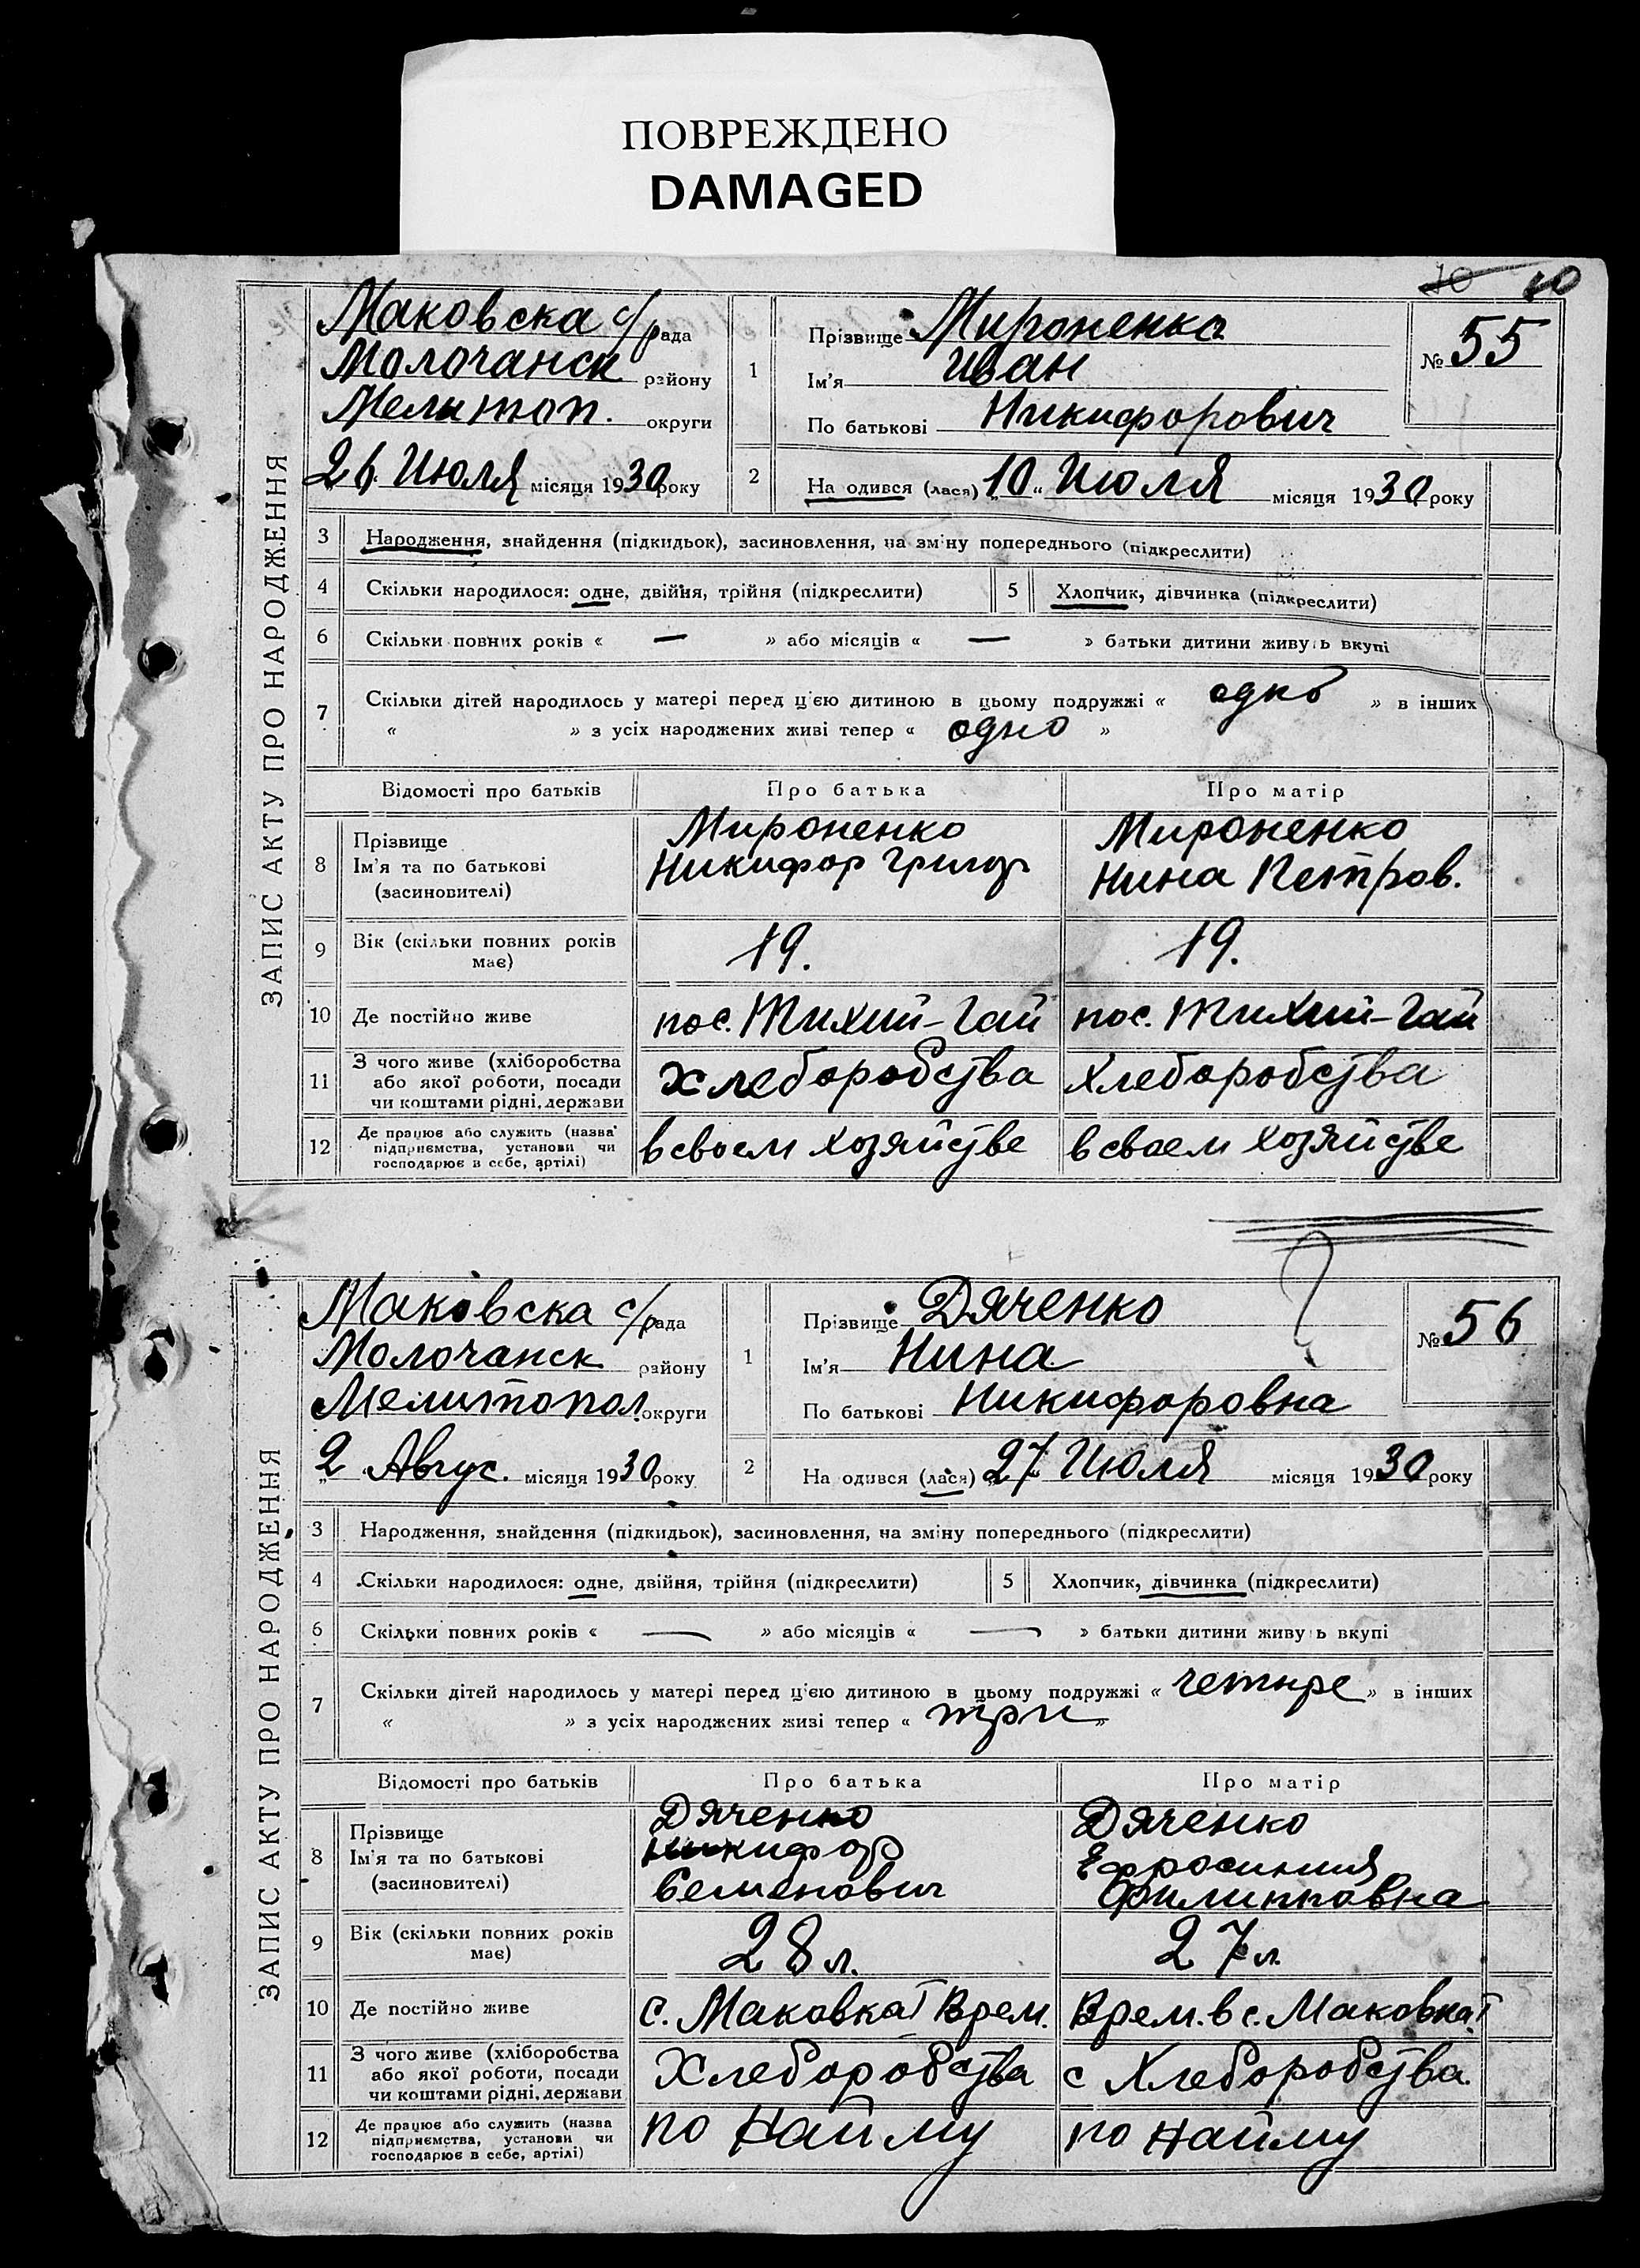 ПОВРЕЖДЕНО
DAMAGED
10 10
ЗАПИС АКТУ ПРО НАРОДЖЕННЯ
Маковска с/рада
Молочанск району
Мелитоп. округи
26 Июля місяця 1930 року
1
Прізвище Мироненко
Ім'я Иван
По батькові Никифорович
№ 55
2
На одився (лася) „10" Июля місяця 1930 року
3 Народження, знайдення (підкидьок), засиновлення, на зміну попереднього (підкреслити)
4 Скільки народилося: одне, двійня, трійня (підкреслити) 5 Хлопчик, дівчинка (підкреслити)
6 Скільки повних років « — » або місяців « — » батьки дитини живуть вкупі
7 Скільки дітей народилось у матері перед цією дитиною в цьому подружжі « одно » в інших
« » з усіх народжених живі тепер « одно »
Відомості про батьків Про батька Про матір
8 Прізвище
Ім'я та по батькові
(засиновителі)
Мироненко
Никифор Григор
Мироненко
Нина Петров.
9 Вік (скільки повних років
має)
19. 19.
10 Де постійно живе пос. Тихий-Гай пос. Тихий-Гай
11 З чого живе (хліборобства
або якої роботи, посади
чи коштами рідні, держави
Хлеборобства Хлеборобства
12 Де працює або служить (назва
підприємства, установи чи
господарює в себе, артілі)
в своем хозяйстве в своем хозяйстве
ЗАПИС АКТУ ПРО НАРОДЖЕННЯ
Маковска с/рада
Молочанск району
Мелитопол округи
„2 Авгус. місяця 1930 року
1
Прізвище Дяченко
Ім'я Нина
По батькові Никифоровна
№ 56
2
На одився (лася) „27 Июля місяця 1930 року
3 Народження, знайдення (підкидьок), засиновлення, на зміну попереднього (підкреслити)
4 Скільки народилося: одне, двійня, трійня (підкреслити) 5 Хлопчик, дівчинка (підкреслити)
6 Скільки повних років « — » або місяців « — » батьки дитини живуть вкупі
7 Скільки дітей народилось у матері перед цією дитиною в цьому подружжі « четыре » в інших
« » з усіх народжених живі тепер « три »
Відомості про батьків Про батька Про матір
8 Прізвище
Ім'я та по батькові
(засиновителі)
Дяченко
Никифор
Семенович
Дяченко
Ефросиния
Филипповна
9 Вік (скільки повних років
має)
28 л. 27 л.
10 Де постійно живе с. Маковка Врем. Врем. в с. Маковка
11 З чого живе (хліборобства
або якої роботи, посади
чи коштами рідні, держави
Хлеборобства с Хлеборобства.
12 Де працює або служить (назва
підприємства, установи чи
господарює в себе, артілі)
по найму по найму